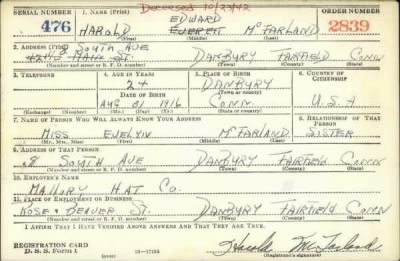 Deceased 10/23/42
SERIAL NUMBER 1. NAME (Print) ORDER NUMBER
EDWARD
476 HAROLD EVERETT McFARLAND 2839
(First) (Middle) (Last)
2. ADDRESS (Print) 8 SOUTH AVE
MAIN ST DANBURY FAIRFIELD CONN
(Number and street or R. F. D. number) (Town) (County) (State)
3. TELEPHONE 4. AGE IN YEARS 5. PLACE OF BIRTH 6. COUNTRY OF CITIZENSHIP
24 DANBURY
DATE OF BIRTH (Town or county)
AUG 31 1916 CONN. U.S.A
(Exchange) (Number) (Mo.) (Day) (Yr.) (State or country)
7. NAME OF PERSON WHO WILL ALWAYS KNOW YOUR ADDRESS 8. RELATIONSHIP OF THAT PERSON
MISS EVELYN McFARLAND SISTER
(Mr., Mrs., Miss) (First) (Middle) (Last)
9. ADDRESS OF THAT PERSON
8 SOUTH AVE DANBURY FAIRFIELD CONN
(Number and street or R. F. D. number) (Town) (County) (State)
10. EMPLOYER'S NAME
MALLORY HAT CO.
11. PLACE OF EMPLOYMENT OR BUSINESS
ROSE & BEAVER ST. DANBURY FAIRFIELD CONN
(Number and street or R. F. D. number) (Town) (County) (State)
I AFFIRM THAT I HAVE VERIFIED ABOVE ANSWERS AND THAT THEY ARE TRUE.
REGISTRATION CARD
D. S. S. Form 1 (over) 16—17105 Harold McFarland
(Registrant's signature)